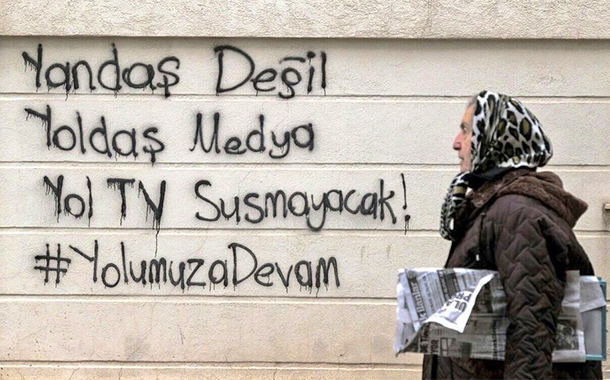 Yandaş Değil
Yoldaş Medya
Yol TV Susmayacak!
#YolumuzaDevam